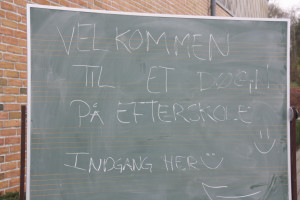 VELKOMMEN
TIL "ET DØGN
PÅ EFTERSKOLE"
INDGANG HER